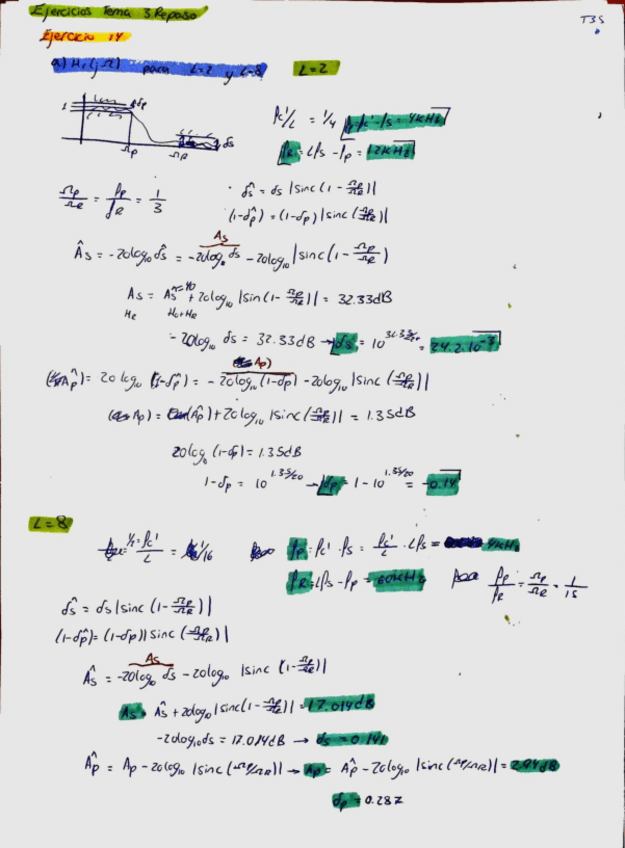 Ejercicios Tema 3 Repaso
T35
Ejercicio 14
a) H₁(jΩ) para L=2 y L=8 L=2
1 δp
Ωp Ωr δs
fc'/L = 1/4 fp = fc'·fs = 4kHz
fR = Lfs - fp = 12kHz
Ωp/ΩR = fp/fR = 1/3
· δ̂s = δs |sinc(1 - Ωp/ΩR)|
(1-δ̂p) = (1-δp) |sinc(Ωp/ΩR)|
As
Âs = -20log₁₀ δ̂s = -20log₁₀ δs - 20log₁₀ |sinc(1 - Ωp/ΩR)
As = Âs + 20log₁₀ |sinc(1 - Ωp/ΩR)| = 32.33dB
Hr H₀+Hr
-20log₁₀ δs = 32.33dB → δs = = 24.2·10⁻³
Ap)
Âp) = 20 log₁₀ (1-δ̂p) = - 20log₁₀ (1-δp) - 20log₁₀ |sinc(Ωp/ΩR)|
Ap) = (Âp) + 20log₁₀ |sinc(Ωp/ΩR)| = 1.35dB
20log₁₀ (1-δp) = 1.35dB
1-δp = 10^1.35/20 → δp = 1 - 10^1.35/20 = -0.14
L=8
fc'/L = 1/16 fp = fc'·fs = fc'/L · Lfs = 4kHz
fR = Lfs - fp = 60kHz fp/fR = Ωp/ΩR = 1/15
δ̂s = δs |sinc (1 - Ωp/ΩR)|
(1-δ̂p) = (1-δp) |sinc (Ωp/ΩR)|
As
Âs = -20log₁₀ δs - 20log₁₀ |sinc (1 - Ωp/ΩR)|
As = Âs + 20log₁₀ |sinc(1 - Ωp/ΩR)| = 17.014dB
-20log₁₀ δs = 17.014dB → δs = 0.141
Âp = Ap - 20log₁₀ |sinc (Ωp/ΩR)| → Ap = Âp - 20log₁₀ |sinc(Ωp/ΩR)| = 2.94dB
δp = 0.287